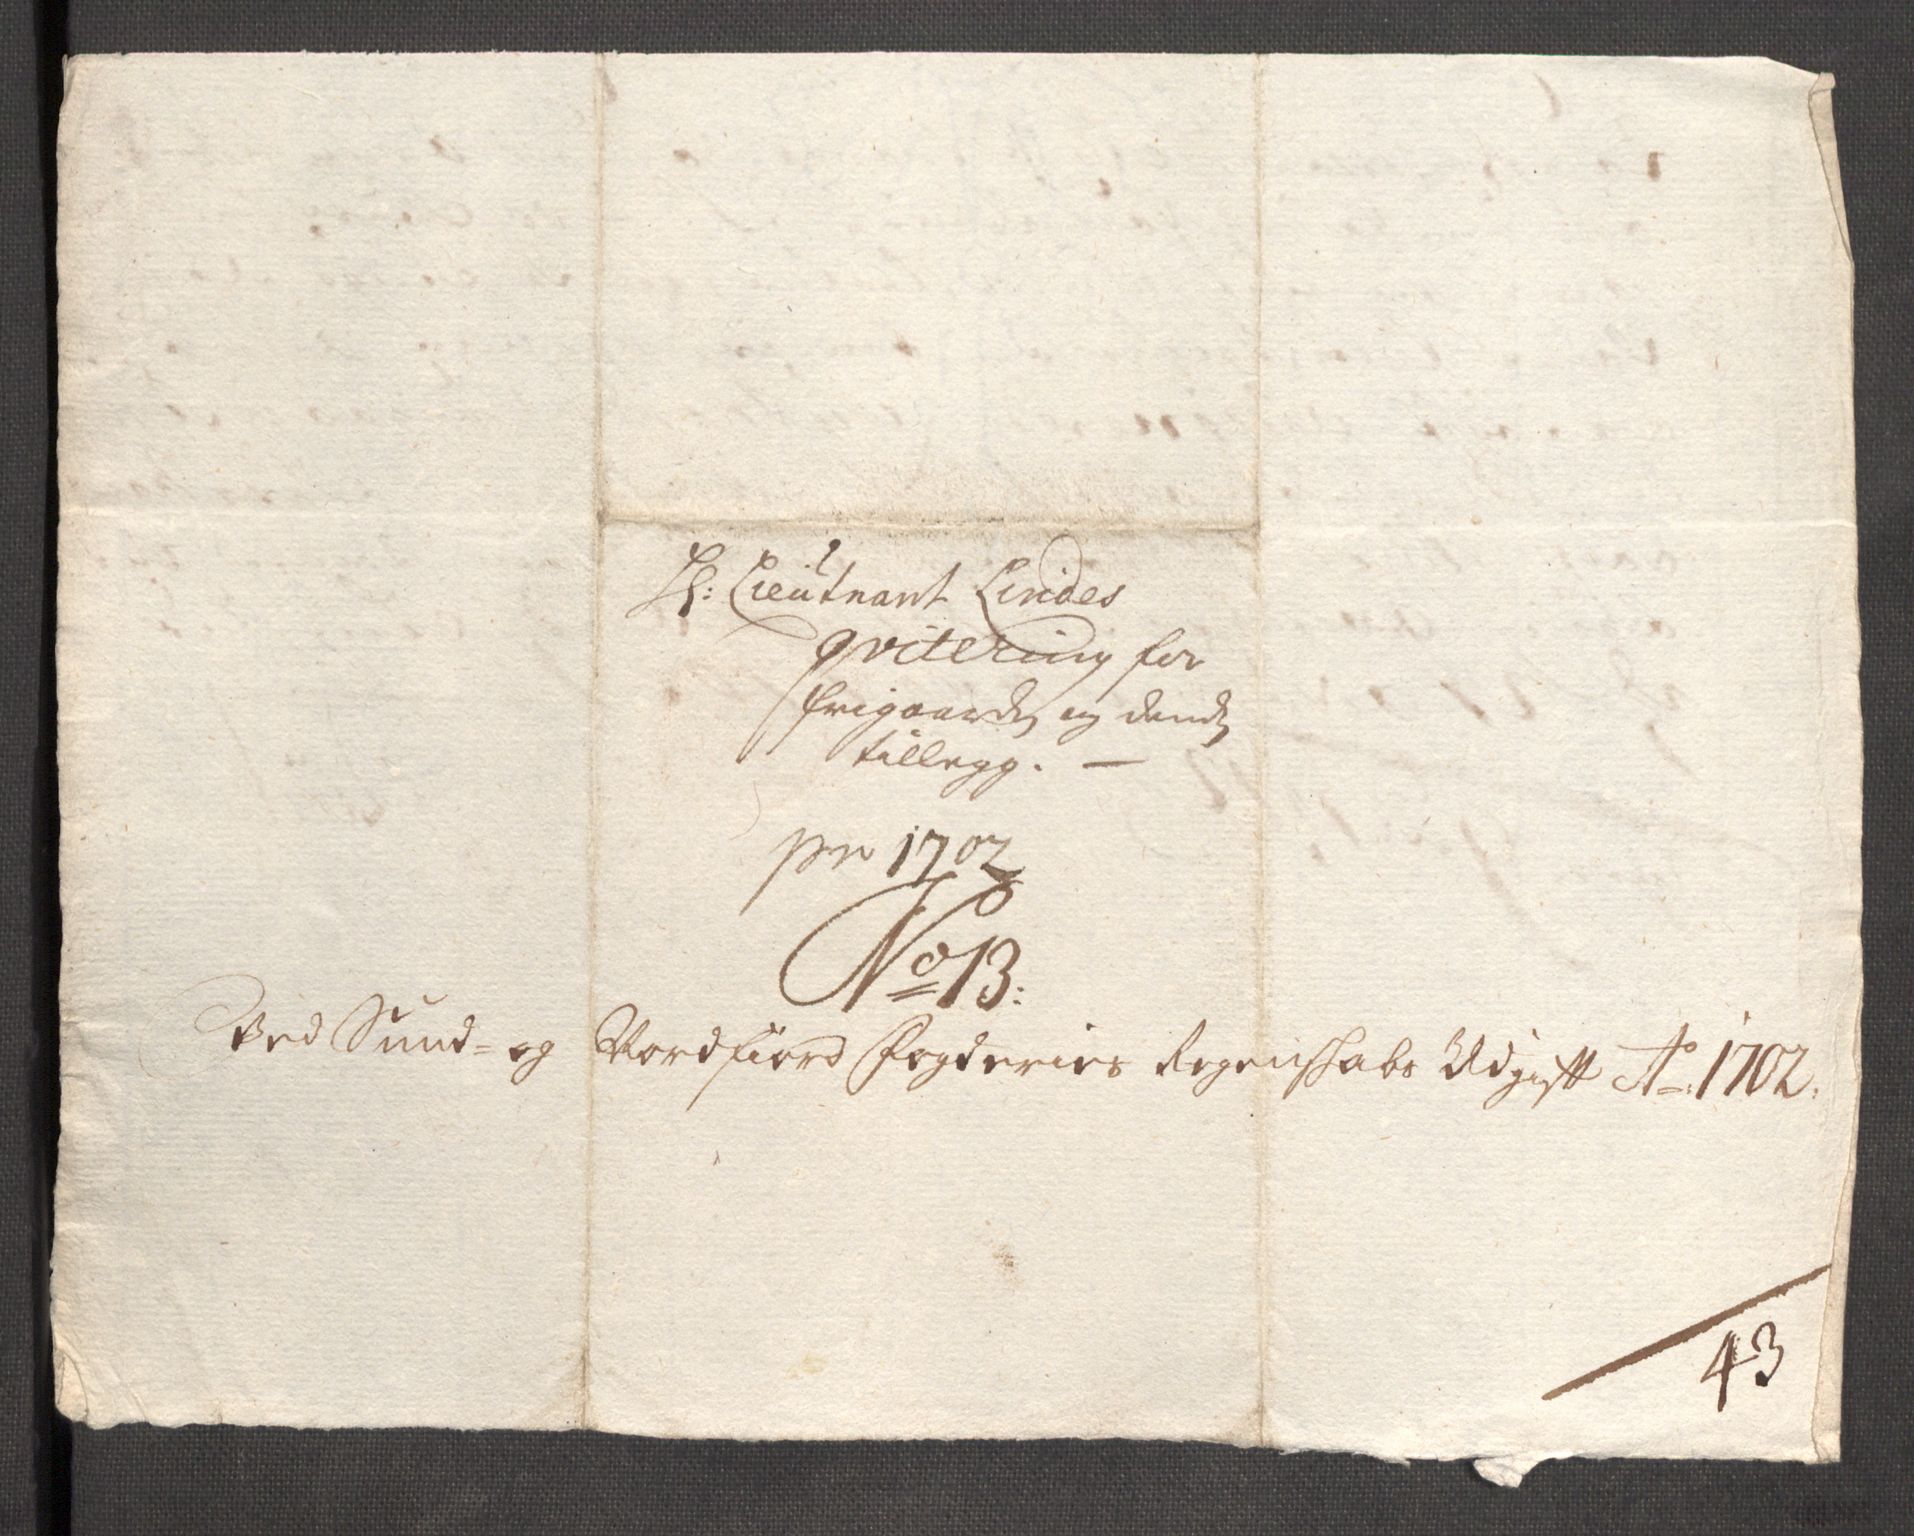 H: Lieutnant Lindes
qvitering for
frigaarden og dends
tillegg. —
pro 1702
No 13:
Ved Sund- og Nordfiord Fogderies Regenschabs Udgifft Ao: 1702.
43